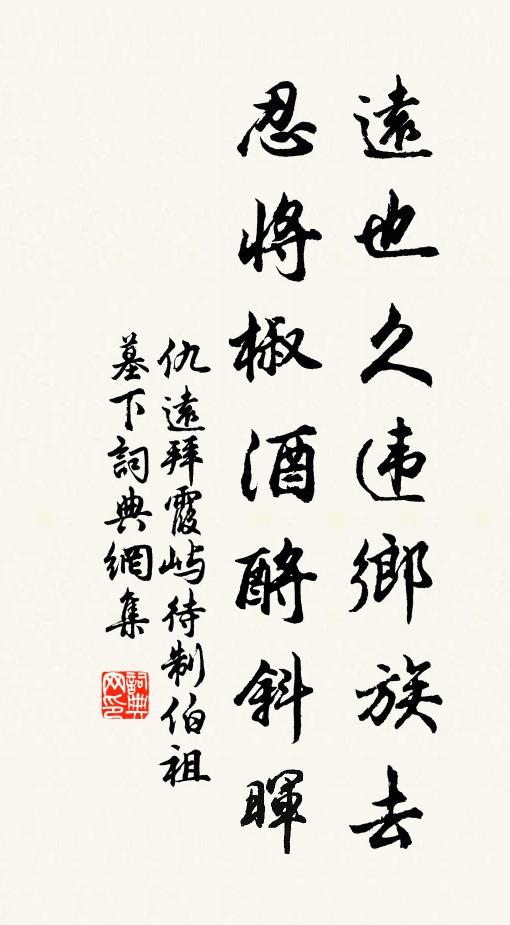 遠也久违鄉族去
忍將椒酒酹斜暉
仇遠拜霞屿待制伯祖
墓下詞典網集
詞典网印